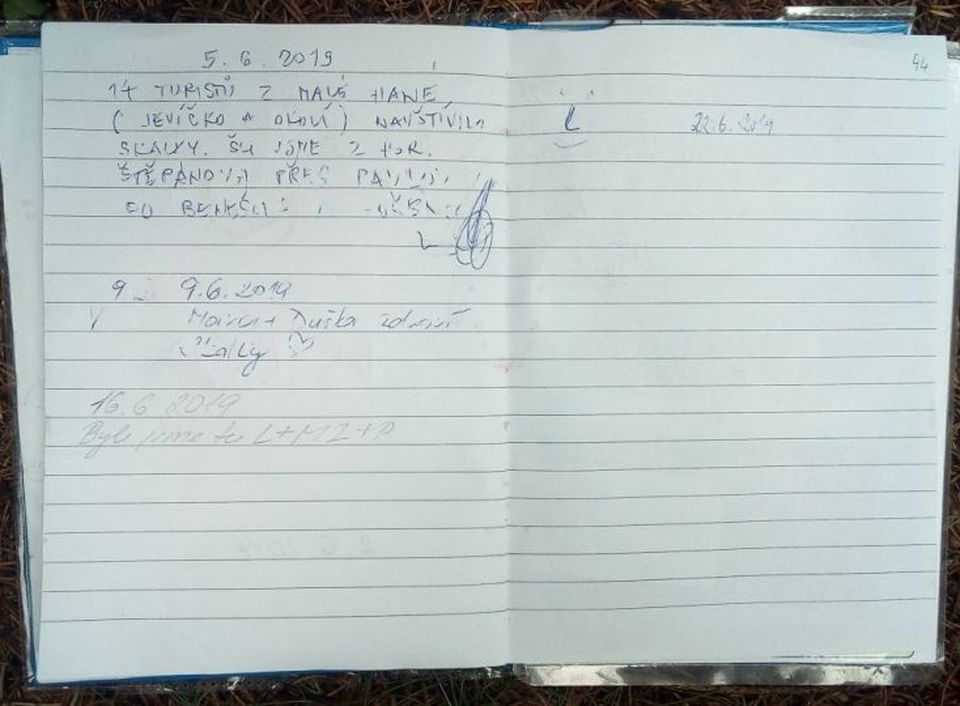 5. 6. 2019
17 TURISTŮ Z MALÉ HANÉ
( JEVÍČKO A OKOLÍ ) NAVŠTÍVILO
SKALKY. ŠLI JSME Z HOR.
ŠTĚPÁNOVA PŘES
DO
9 9.6.2019
+ Duška zdraví
16.6 2019
Byli jsme tu L+M Z+P
44
22.6.2019